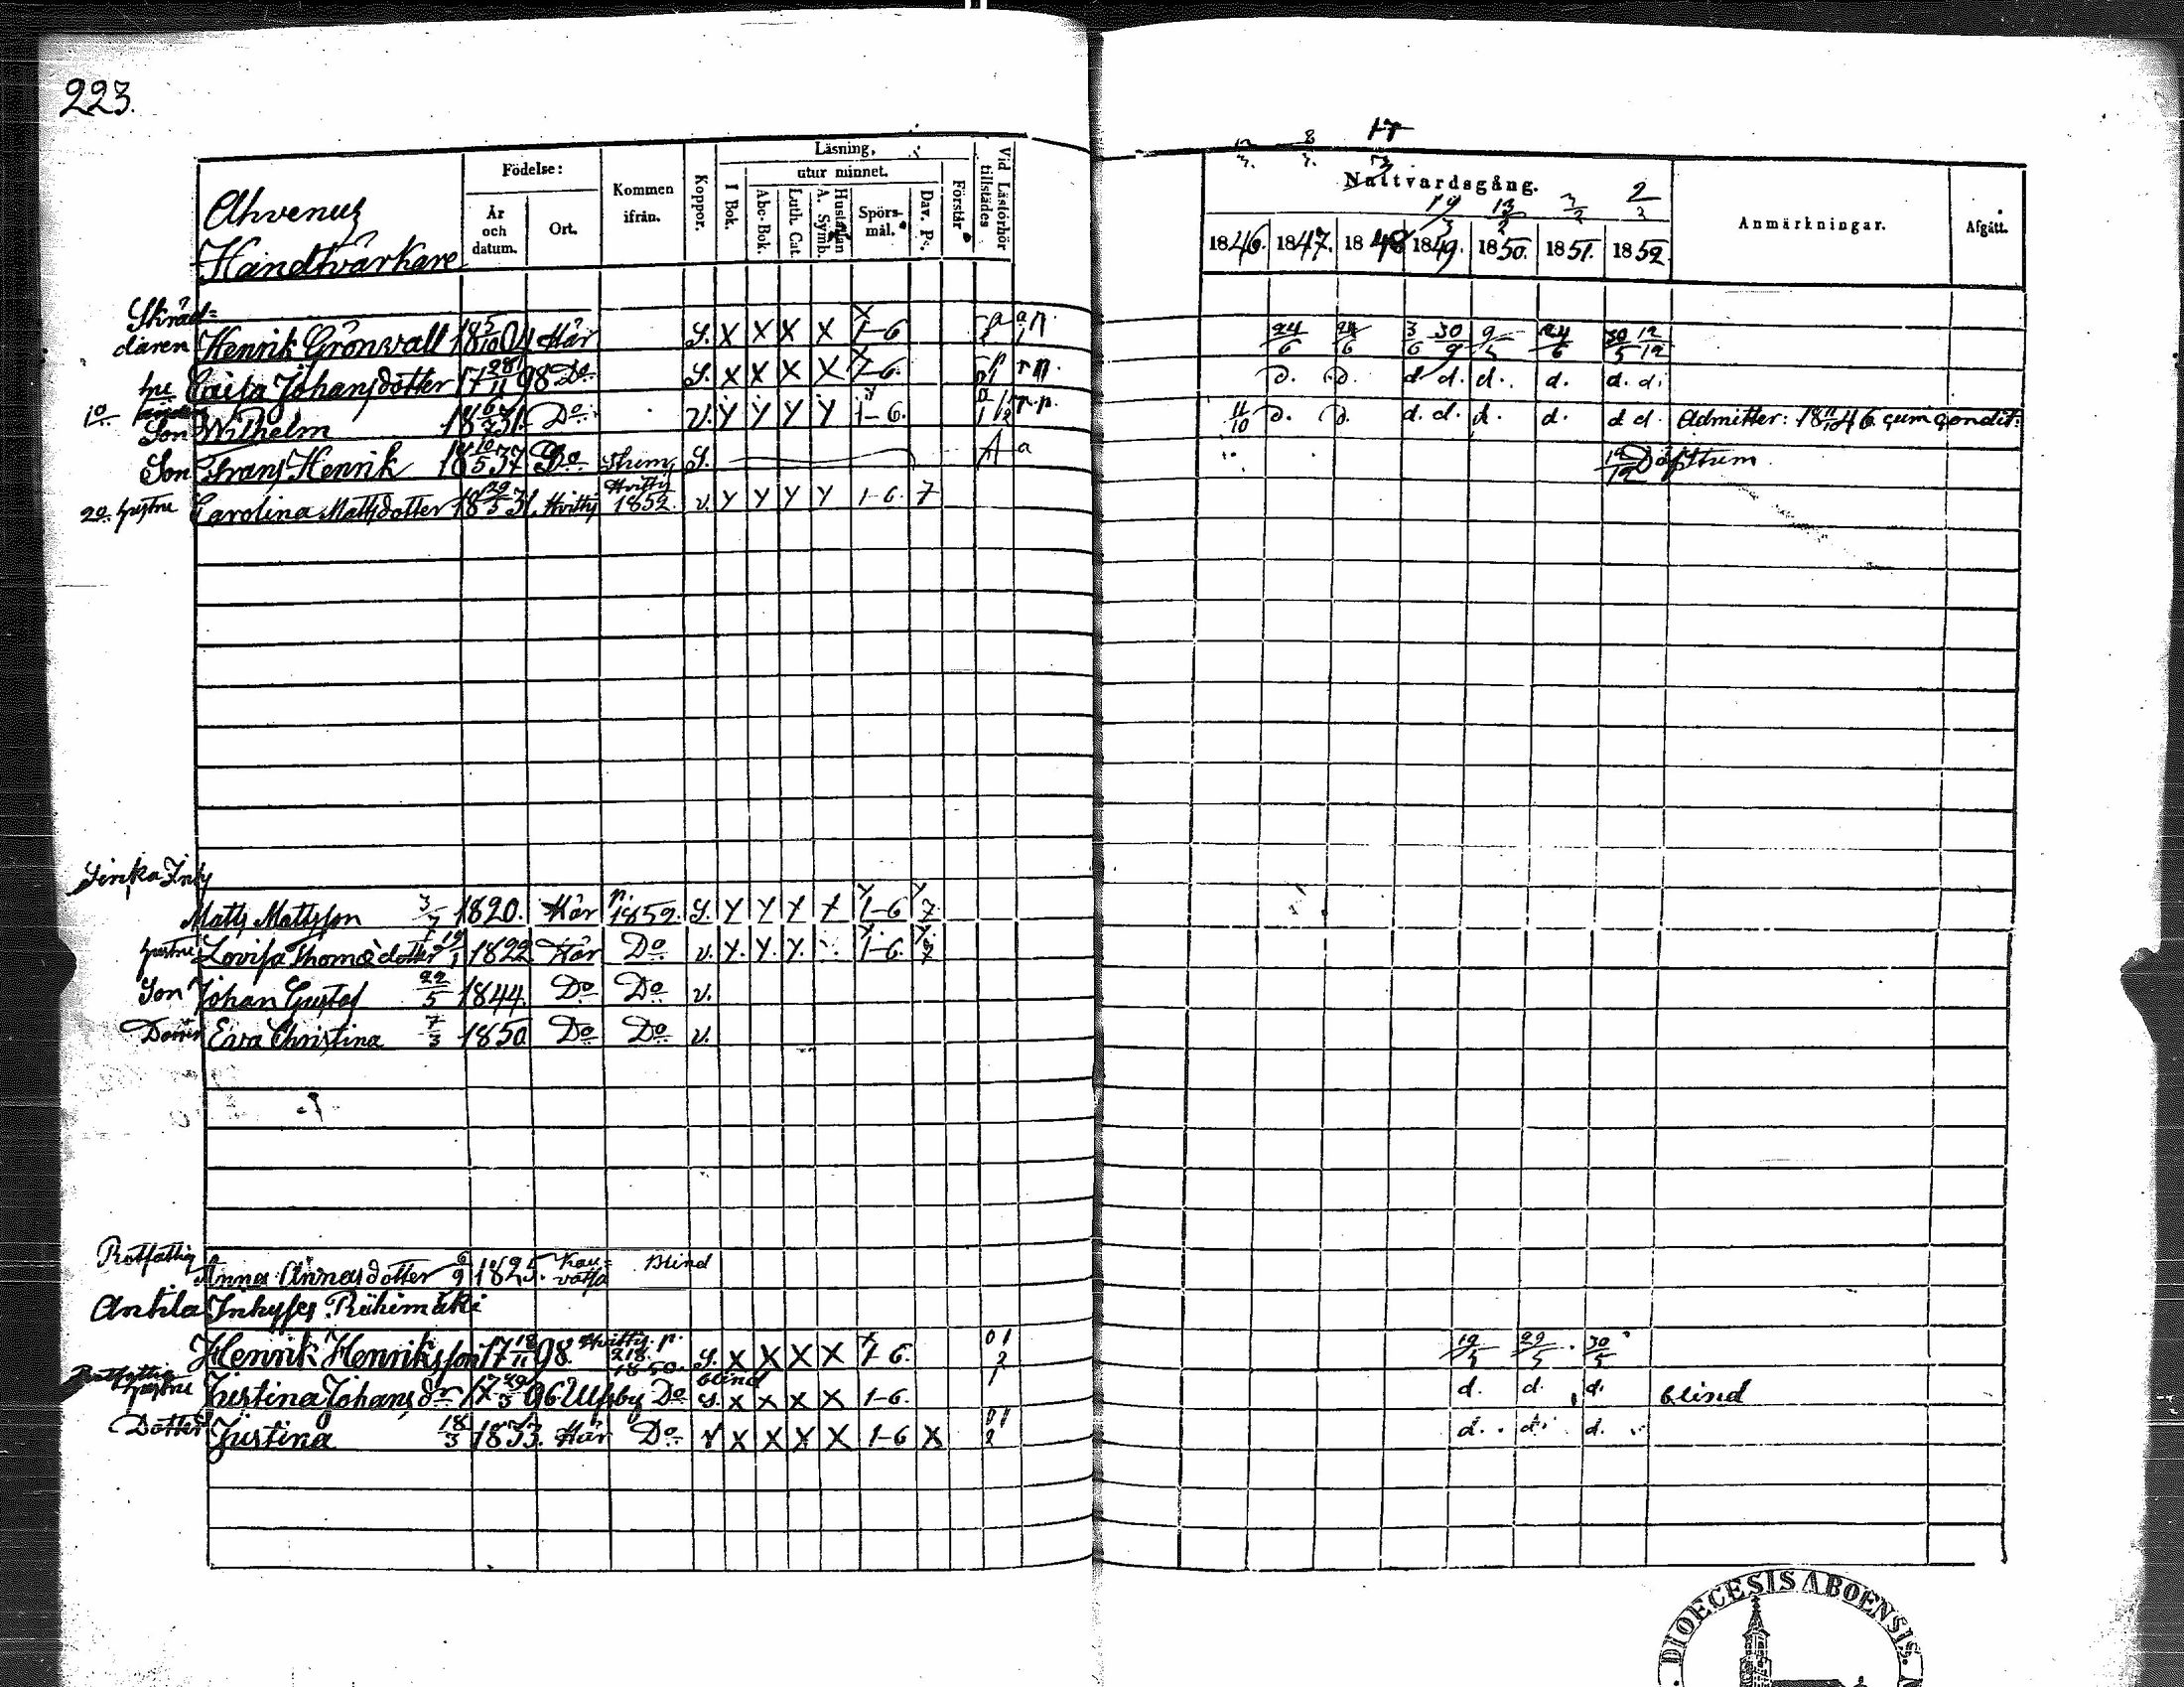 223.
Ahvenus
Handtvärkare
Födelse:
År och datum.
Ort.
Kommen ifrån.
Koppor.
Läsning,
I Bok.
utur minnet.
Abc-Bok.
Luth. Cat.
Hustaflan A. Symb.
Spörs-mål.
Dav. Ps.
Förstår
Vid Läsförhör tillstädes
17
Nattvardsgång.
19/3 13/2 3/2 2/3
1846. 1847. 1848 1849. 1850. 1851. 1852.
Anmärkningar.
Afgått.
Skräd=
daren Henrik Grönwall 18 5/10 04 Här S. X X X X 1-6 24/6 24/6 3/6 30/9 9/5 24/6 30/5 12/12
hu Caisa Johansdotter 17 28/11 98 Do S. X X X X 1-6. d. d. d d. d. d. d. d.
1o Son Wilhelm 18 6/7 31. Do v. Y Y Y Y 1-6. 11/10 d. d. d. d. d. d. d d. Admitter: 18 11/10 46 cum condit:
Son Frans Henrik 18 10/5 37 Do S. A a
2o hustru Carolina Mattsdotter 18 29/3 31. Hvittis Hvittis 1852. v. Y Y Y Y 1-6. 7
Matts Mattsson 3/7 1820. Här n. 1852. S. Y Y Y Y 1-6 7
hustru Lovisa Thomædotter 19/1 1822 Här Do v. Y. Y. Y. 1-6. 7
Son Johan Gustaf 22/5 1844. Do Do v.
Dotter Eva Christina 7/3 1850 Do Do v.
Rotfattig
Anna Annasdotter 6/9 1825. Kau=vatsa Blind
Antila Inhyses Riihimäki
Henrik Henriksson 17 18/11 98. Hvittis p. 218. 1850. S. X X X X 1-6. 19/5 29/5 30/5
Rotfattig hustru Justina Johansdr 17 29/3 96 Ulfsby Do blind S. x x x x 1-6. d. d. d. blind
Dotter Justina 18/3 1833. Här Do v X X X X 1-6 X d. d. d.
DIOECESIS ABOENSIS.